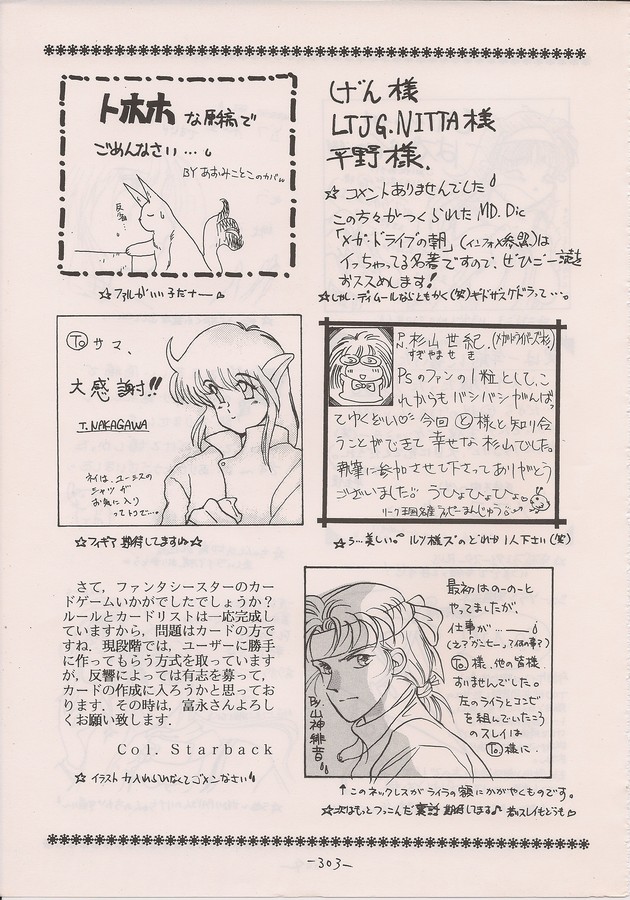 トホホ な原稿で
ごめんなさい…
BY あおみことこのカバル
☆ファルがいい子だナー
げん様
LTJG.NITTA様
平野様.
☆コメントありませんでした
この方々がつくられた MD. Dic
「メガ・ドライブの朝」(インフォメ参照)は
イッちゃってる名著ですので、ぜひご一読を
おススメします!
To サマ、
大感謝!!
T. NAKAGAWA
ネイは、ユーシスの
シャツが
お気に入り
ってトコで…。
☆フィギア期待してます☆
P.N. 杉山 世紀. (メガドライバーズ杉)
すぎやま せき
PSのファンの1粒として、こ
れからもバシバシがんばっ
てゆくどい♡ 今回 と様と知り合
うことができて幸せな杉山でした。
執筆に参加させて下さってありがとう
ございました。うひょひょひょ
☆う…美しい。ルツ様ズのどれか1人下さい(笑)
さて,ファンタシースターのカー
ドゲームいかがでしたでしょうか?
ルールとカードリストは一応完成し
ていますから,問題はカードの方で
すね.現段階では,ユーザーに勝手
に作ってもらう方式を取っています
が,反響によっては有志を募って,
カードの作成に入ろうかと思ってお
ります.その時は,富永さんよろし
くお願い致します.
Col. Starback
☆イラスト力入れられなくてゴメンなさい
最初はのーのーと
やってましたが、
仕事が…
To様、他の皆様
すいませんでした。
左のライラとコンビ
を組んでいたころ
のスレイは
To様に.
By 山神緋音
↑このネックレスがライラの額にかがやくものです。
-303-